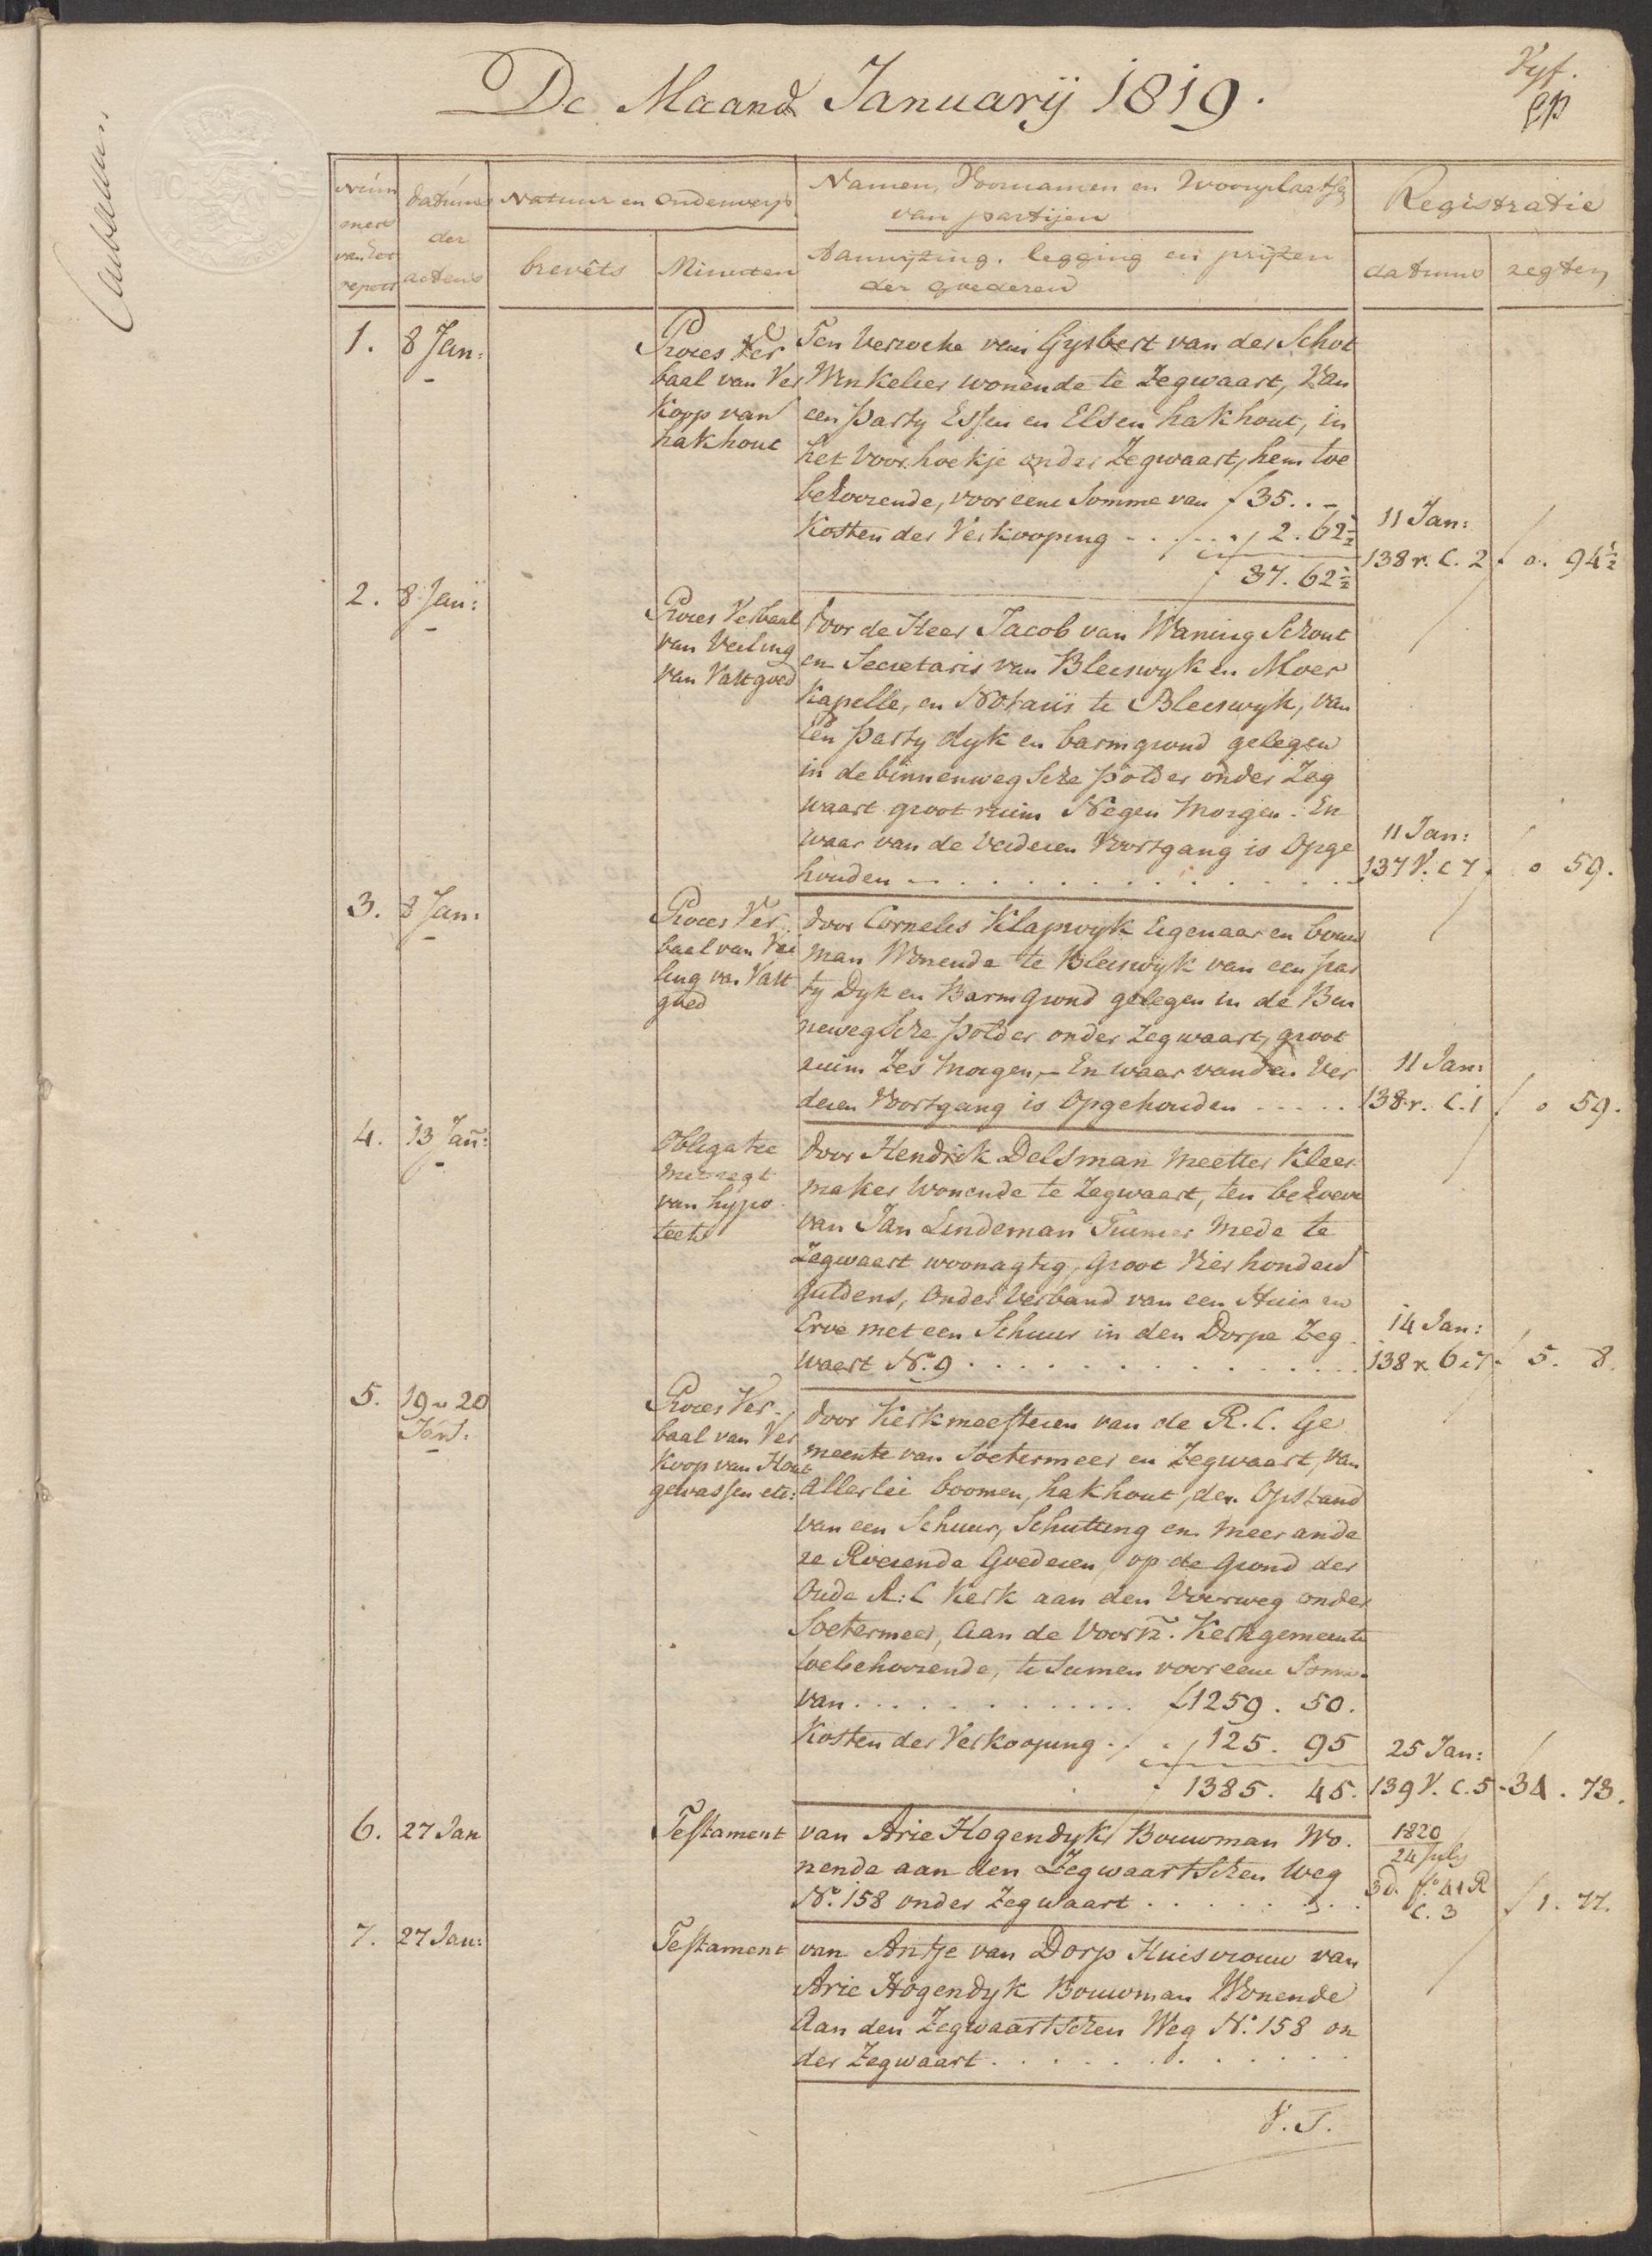 De Maand Januarij 1819.
Vyf.
Num
mers
van het
repert
datums
der
actens
Natuur en onderwerp
brevêts
Minuten
Namen, Voornamen en Woonplaatse
van partijen
Aanwijzing, legging en prijzen
der goederen
Registratie
datums
regten
1.
8 Jan:
Proces Ver
baal van Ver
Koop van
hakhout
Ten Verzoeke van Gysbert van der Schot
Winkelier wonende te Zegwaart, van
een Party Essen en Elsen hakhout, in
het Voorhoekje onder Zegwaart, hem toe
behoorende, voor eene Somme van f 35. . -
Kosten der Verkooping - . . . . . , 2. 62½
f 37. 62½
11 Jan:
138 r. C. 2
f 0. 94½
2.
8 Jan:
Proces Verbaal
van Veiling
van Vastgoed
Door de Heer Jacob van Waning Schout
en Secretaris van Bleiswyk en Moer
Kapelle, en Notaris te Bleiswyk, van
Een Party dyk en barmgrond gelegen
in de binnenwegsche polder onder Zeg
waart groot ruim Negen Morgen. En
waar van de Verderen Voortgang is Opge
houden - . . . . . . . . . . . .
11 Jan:
137 V. C 7
f 0 59.
3.
8 Jan:
Proces Ver
baal van Vei
ling van Vast
goed
Door Cornelis Klapwyk Eigenaar en bouw
man Wonende te Bleiswyk van een par
ty Dyk en Barmgrond gelegen in de Bin
newegsche polder onder Zegwaart, groot
ruim Zes Morgen, - En waar van den Ver
deren Voortgang is Opgehouden - - - - -
11 Jan:
138 r. C. 1
f 0 59.
4.
13 Jan:
Obligatie
met regt
van hypo
teek
Door Hendrik Delsman Meester Kleer
maker Wonende te Zegwaart, ten behoeve
van Jan Lindeman Tuinier Mede te
Zegwaart woonagtig, Groot Vier honderd
guldens, Onder Verband van een Huis en
Erve met een Schuur in den Dorpe Zeg
waart No. 9 . . . . . . . . . . . . .
14 Jan:
138 r 6 . 7
f 5. 8.
5.
19 & 20
Jan:
Proces Ver
baal van Ver
Koop van Hout
gewassen etc:
Door Kerkmeesteren van de R. C. Ge
meente van Soetermeer en Zegwaart, van
Allerlei boomen, hakhout, den Opstand
van een Schuur, Schutting en meer ande
re Roerende Goederen, op de Grond der
Oude R: C Kerk aan den Voorweg onder
Soetermeer, Aan de Voorn. Kerkgemeente
toebehoorende, te Samen voor eene Somma
van . . . . . . . . . . . . f 1259. 50.
Kosten der Verkooping . . . , 125. 95
f 1385. 45.
25 Jan:
139 V. C. 5
f 34. 73.
6.
27 Jan
Testament
van Arie Hogendyk Bouwman Wo
nende aan den Zegwaartschen Weg
No. 158 onder Zegwaart . . . . . . . .
1820
24 July
3 d. fo. 41 R
C. 3
f 1. 77.
7.
27 Jan:
Testament
van Antje van Dorp Huisvrouw van
Arie Hogendyk Bouwman Wonende
Aan den Zegwaartschen Weg No. 158 on
der Zegwaart . . . . . . . . . . . .
V. T.